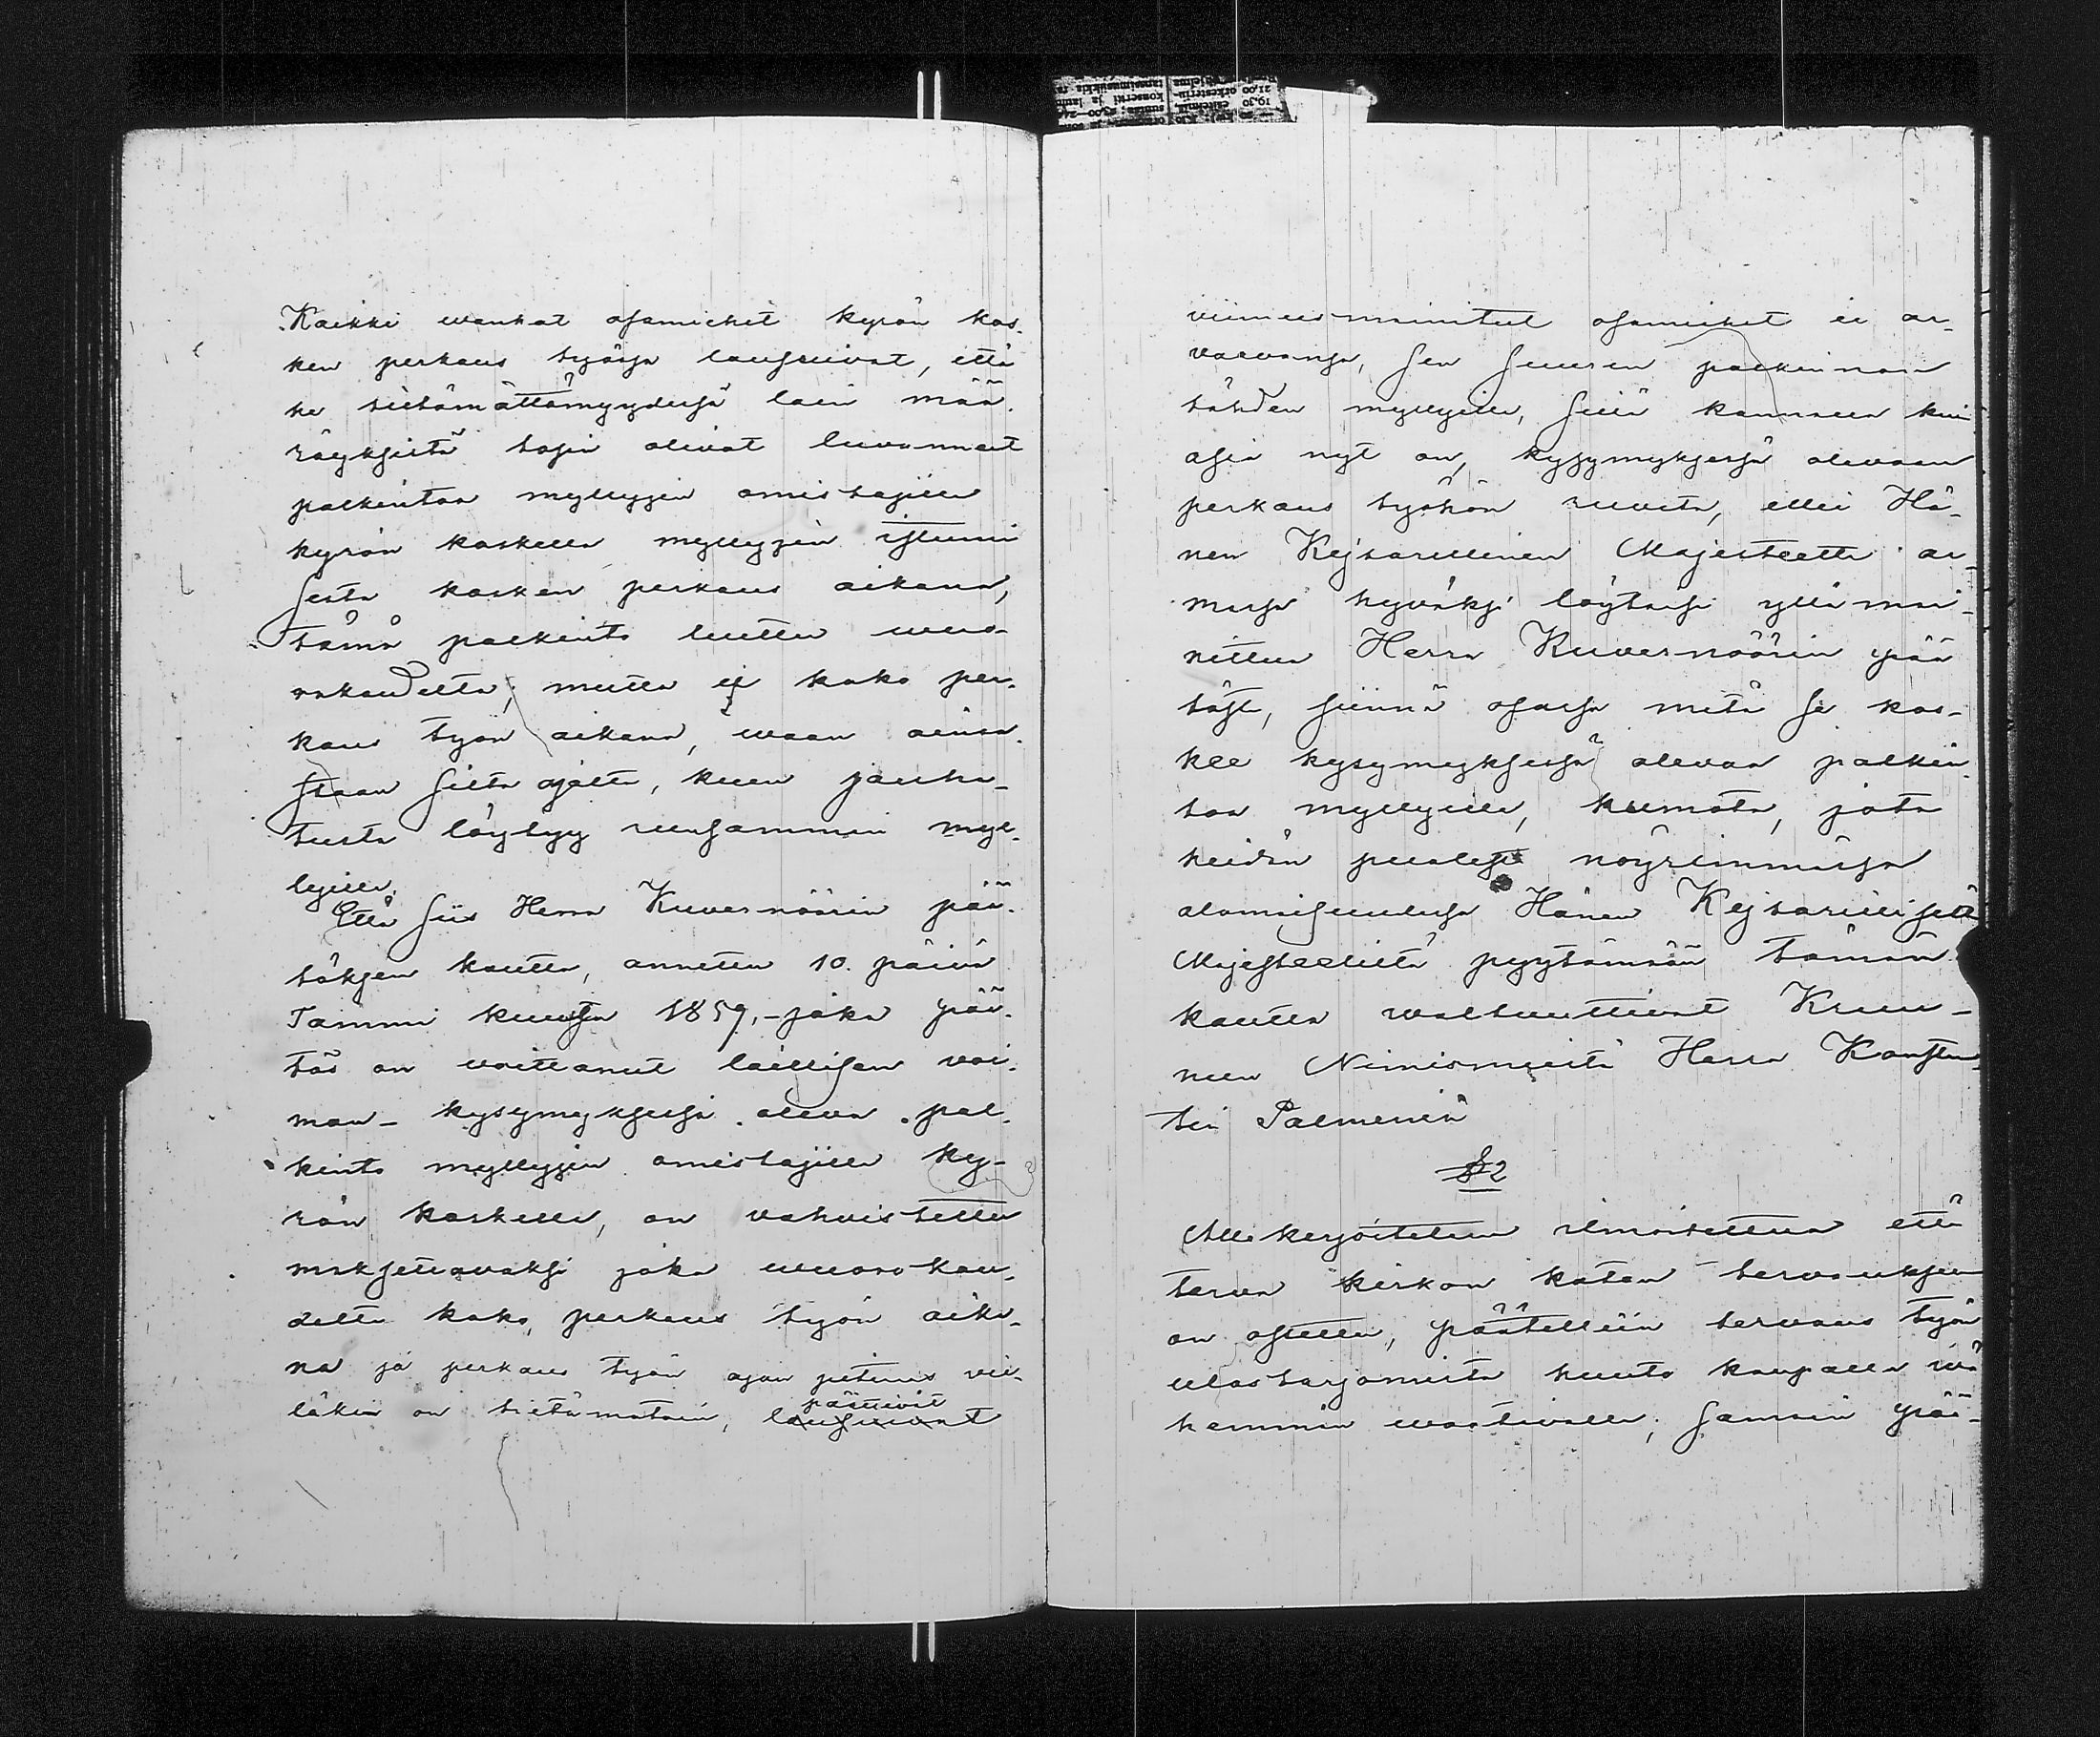 Kaikki wanhat osamiehet kyrön kos-
ken perkaus työssä lausuivat, että
he tietämättömyydessä lain mää-
räyksistä tosin olivat luvanneet
palkintoa myllyjen omistajille
kyrön koskella myllyjen
sesta kosken perkaus aikana,
tämä palkinto luettu wuo-
rokaudelta; mutta ei koko per-
kaus työn aikana, waan ainoa-
staan siltä ajalta, kuin jauha-
tusta löytyy useammin myl-
lyille.
Että siis Herra Kuvernöörin pää-
töksen kautta, annettu 10. päivä
Tammi kuussa 1859,- joka pää-
tös on voittanut laillisen voi-
man- kysymyksessä oleva pal-
kinto myllyjen omistajille ky-
rön koskella, on vahvistettu
maksettavaksi joka wuorokau-
delta koko, perkaus työn aika-
na ja perkaus työn ajan pituus vie-
läkin on tietämätöin, lausuivat päättivät
viimeismainitut osamiehet ei ar-
vaavansa, sen suuren palkinnon
tähden myllyille, sillä kannalla kuin
asia nyt on, kysymyksessä olevaan
perkaus työhön ruveta, ellei Hä-
nen Kejsarillinen Majesteetti ar-
mossa hyväksi löytäisi yllä mai-
nittua Herra Kuvernöörin pää
töstä, siinä osassa mitä se kos-
kee kysymyksessä olevaa palkin-
toa myllyille, kumota, jota
heidän puolesta nöyrimmässä
alamaisuudessa Hänen Kejsarilliselta
Majesteetilta pyytämään tämän
kautta waltuuttivat Kruu-
nun Nimismiestä Herra Konstan-
tin Palmenia
§2
Alla kirjoitetun ilmoitettua että
terva kirkon katon tervauksen
on ostettu, päätettiin tervaus työn
ulos tarjomista huuto kaupalla wä
hemmin waativalle; samoin pää-